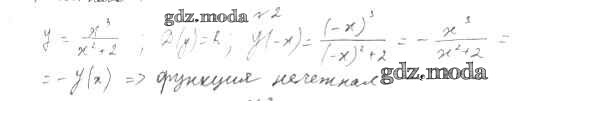 gdz.moda №2
y = x³/(x²+2) ; D(y)=R ; y(-x) = (-x)³/((-x)²+2) = - x³/(x²+2) =
= -y(x) => функция нечетная gdz.moda